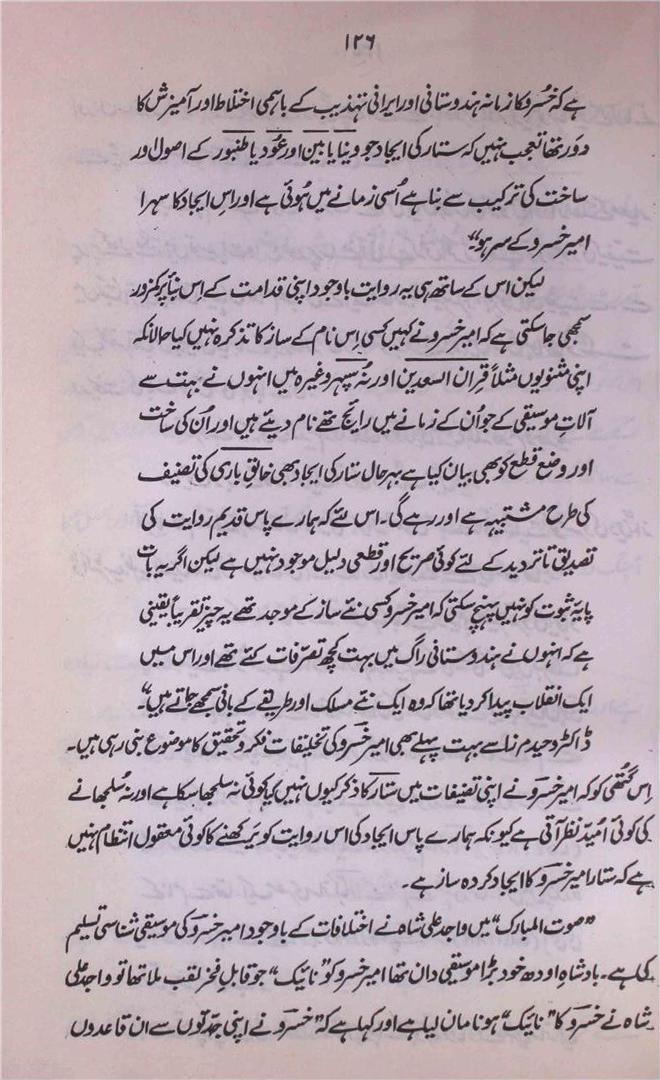 ۱۲۶
ہے کہ خسرو کا زمانہ ہندوستانی اور ایرانی تہذیب کے باہمی اختلاط اور آمیزش کا
دور تھا تعجب نہیں کہ ستار کی ایجاد جو وینا یا بین اور عود یا طنبور کے اصول اور
ساخت کی ترکیب سے بنا ہے اُسی زمانے میں ہُوئی ہے اور اس ایجاد کا سہرا
امیر خسرو کے سر ہو“۔
لیکن اس کے ساتھ ہی یہ روایت باوجود اپنی قدامت کے اِس بنأ پر کمزور
سمجھی جا سکتی ہے کہ امیر خسرو نے کہیں کسی اِس نام کے ساز کا تذکرہ نہیں کیا حالانکہ
اپنی مثنویوں مثلاً قران السعدین اور نُہ سپہر وغیرہ میں انہوں نے بہت سے
آلاتِ موسیقی کے جو اُن کے زمانے میں رائج تھے نام دیئے ہیں اور اُن کی ساخت
اور وضع قطع کو بھی بیان کیا ہے بہرحال ستار کی ایجاد بھی خالق باری کی تصنیف
کی طرح مشتبیہہ ہے اور رہے گی۔ اس لئے کہ ہمارے پاس قدیم روایت کی
تصدیق تا تردید کے لئے کوئی صریح اور قطعی دلیل موجود نہیں ہے لیکن اگر یہ بات
پایۂ ثبوت کو نہیں پہنچ سکتی کہ امیر خسرو کسی نئے ساز کے موجد تھے یہ چیز تقریباً یقینی
ہے کہ انہوں نے ہندوستانی راگ میں بہت کچھ تصرّفات کئے تھے اور اس میں
ایک انقلاب پیدا کر دیا تھا کہ وہ ایک نئے مسلک اور طریقے کے بانی سمجھے جاتے ہیں“۔
ڈاکٹر وحید مرزا سے بہت پہلے بھی امیر خسرو کی تخلیقات فکر و تحقیق کا موضوع بنی رہی ہیں۔
اِس گتھی کو کہ امیر خسرو نے اپنی تصنیفات میں ستار کا ذکر کیوں نہیں کیا کوئی نہ سلجھا سکا ہے اور نہ سُلجھانے
کی کوئی اُمید نظر آتی ہے کیونکہ ہمارے پاس ایجاد کی اس روایت کو پرکھنے کا کوئی معقول انتظام نہیں
ہے کہ ستار امیر خسرو کا ایجاد کردہ ساز ہے۔
”صوت المبارک“ میں واجد علی شاہ نے اختلافات کے باوجود امیر خسرو کی موسیقی شناسی تسلیم
کی ہے۔ بادشاہِ اودھ خود بڑا موسیقی دان تھا امیر خسرو کو ”نائیک“ جو قابلِ فخر لقب ملا تھا تو واجد علی
شاہ نے خسرو کا ”نائیک“ ہونا مان لیا ہے اور کہا ہے کہ ”خسرو نے اپنی جدّتوں سے ان قاعدوں